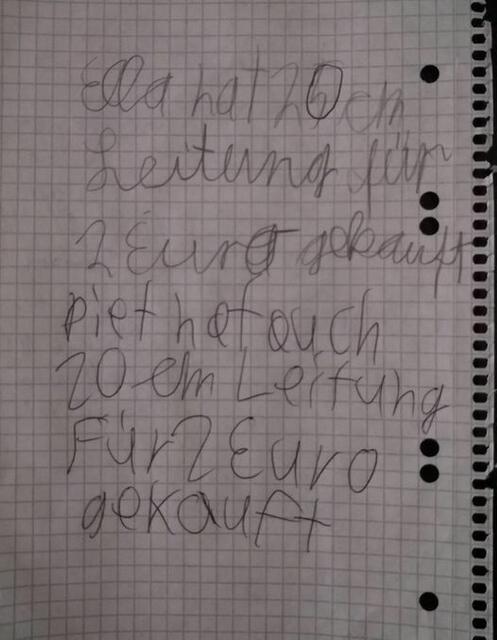 Ella hat 20 cm
Leitung für
2 Euro gekauft
Piet hat auch
20 cm Leitung
Für 2 Euro
gekauft